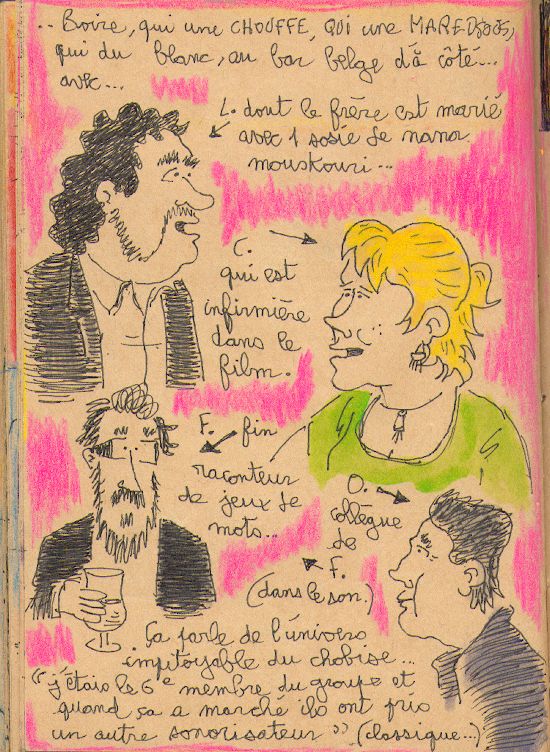 .. Boire, qui une CHOUFFE, QUI une MAREDSOUS,
qui du blanc, au bar belge d'à côté...
avec...
L. dont le frère est marié
avec 1 sosie de nana
mouskouri...
C.
qui est
infirmière
dans le
film.
F. fin
raconteur
de jeux de
mots...
O.
collègue
de
F.
(dans le son)
Ça parle de l'univers
impitoyable du chobise...
"j'étais le 6e membre du groupe et
quand ça a marché ils ont pris
un autre sonorisateur" (classique...)